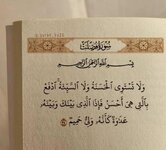 سورة فصلت
بسم الله الرحمن الرحيم
وَلَا تَسْتَوِى الْحَسَنَةُ وَلَا السَّيِّئَةُ ادْفَعْ
بِالَّتِى هِىَ أَحْسَنُ فَإِذَا الَّذِى بَيْنَكَ وَبَيْنَهُ
عَدَاوَةٌ كَأَنَّهُ وَلِىٌّ حَمِيمٌ